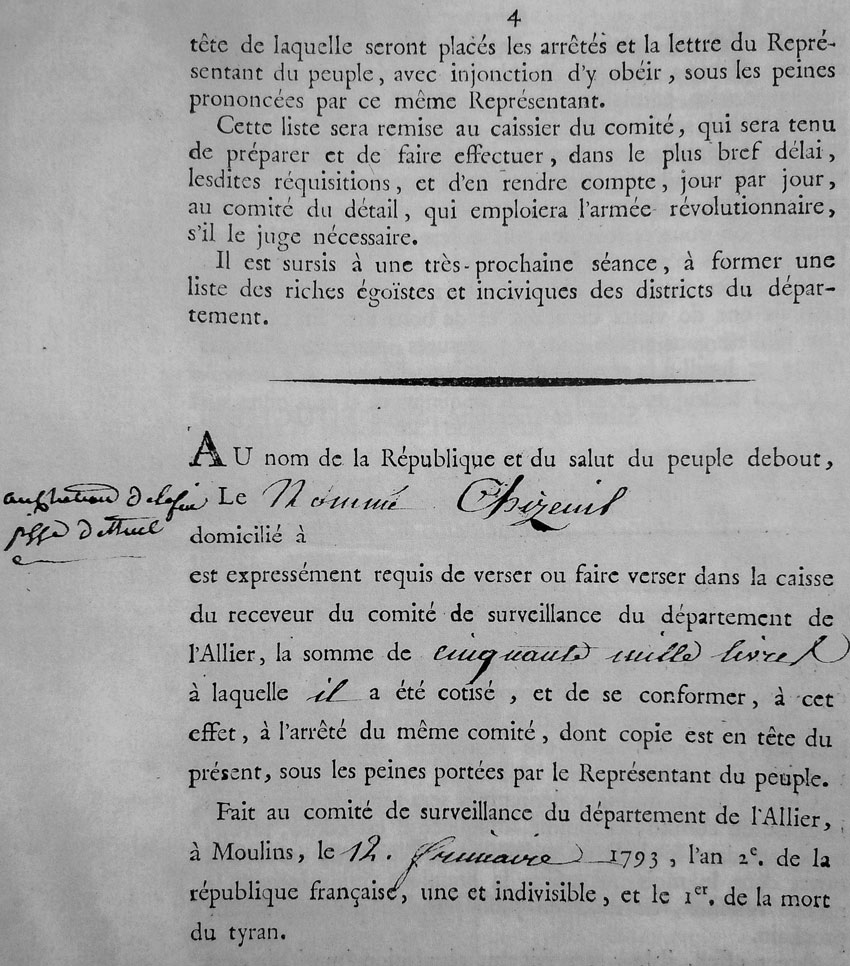 4
tête de laquelle seront placés les arrêtés et la lettre du Repré-
sentant du peuple, avec injonction d'y obéir, sous les peines
prononcées par ce même Représentant.
Cette liste sera remise au caissier du comité, qui sera tenu
de préparer et de faire effectuer, dans le plus bref délai,
lesdites réquisitions, et d'en rendre compte, jour par jour,
au comité du détail, qui emploiera l'armée révolutionnaire,
s'il le juge nécessaire.
Il est sursis à une très-prochaine séance, à former une
liste des riches égoïstes et inciviques des districts du dépar-
tement.
AU nom de la République et du salut du peuple debout,
Le Nommé Chizeuil
domicilié à
est expressément requis de verser ou faire verser dans la caisse
du receveur du comité de surveillance du département de
l'Allier, la somme de cinquante mille livres
à laquelle il a été cotisé, et de se conformer, à cet
effet, à l'arrêté du même comité, dont copie est en tête du
présent, sous les peines portées par le Représentant du peuple.
Fait au comité de surveillance du département de l'Allier,
à Moulins, le 12. frimaire 1793, l'an 2e. de la
république française, une et indivisible, et le 1er. de la mort
du tyran.